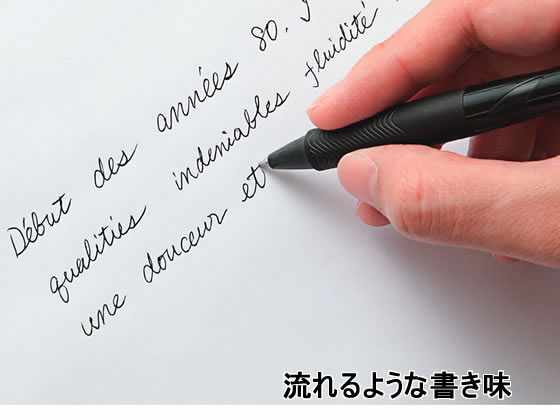 Début des années 80.
qualitiés indeniables fluidité
une douceur et
流れるような書き味